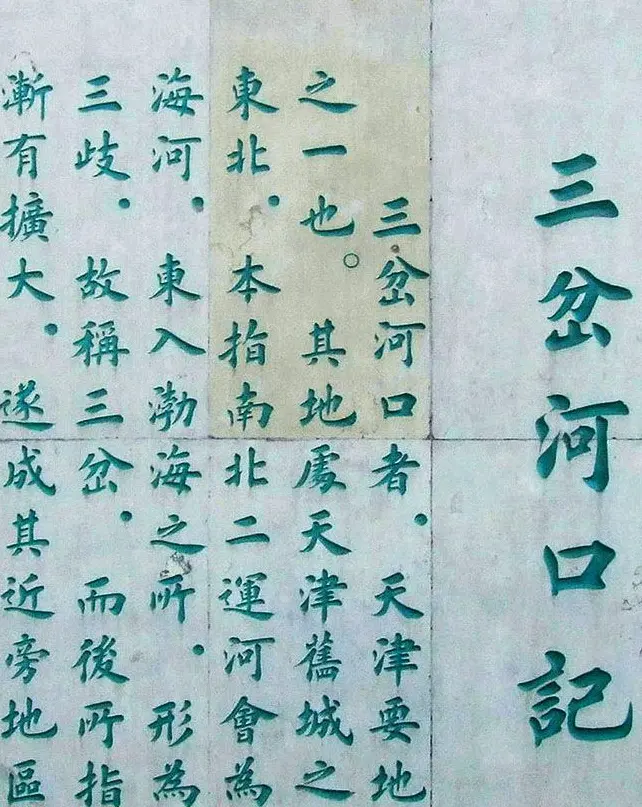 三岔河口記
三岔河口者．天津要地
之一也。其地處天津舊城之
東北．本指南北二運河會為
海河．東入渤海之所．形為
三歧．故稱三岔．而後所指
漸有擴大．遂成其近旁地區